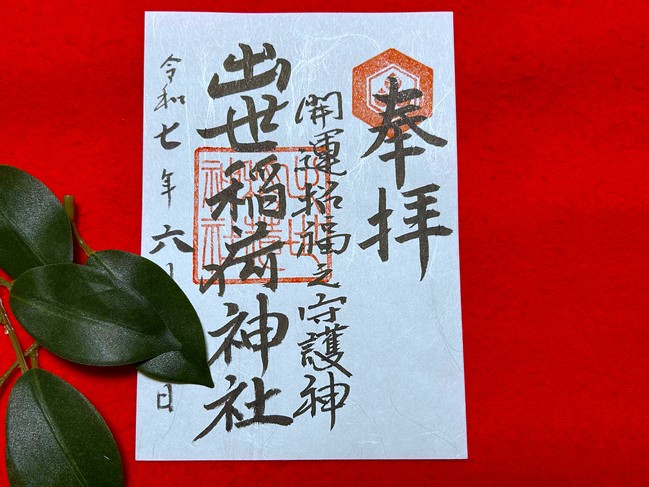 奉拝
開運招福之守護神
出世稲荷神社
令和七年六
日